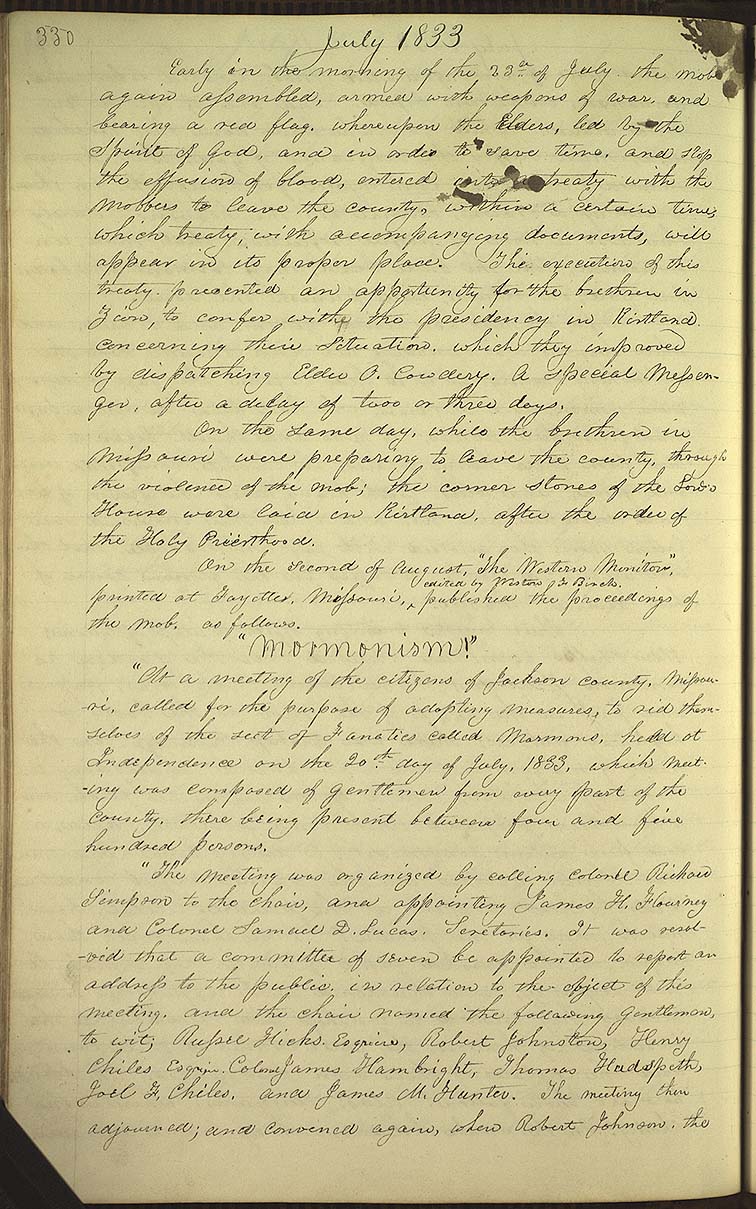 330
July 1833
Early in the morning of the 23d of July the mob
again assembled, armed with weapons of war, and
bearing a red flag. whereupon the Elders, led by the
Spirit of God, and in order to save time, and stop
the effusion of blood, entered into a treaty with the
mobbers to leave the county, within a certain time,
which treaty, with accompanying documents, will
appear in its proper place. The execution of this
treaty presented an opportunity for the brethren in
Zion, to confer with the presidency in Kirtland
concerning their situation, which they improved
by dispatching Elder O. Cowdery. A special Messen-
ger, after a delay of two or three days.
On the same day, while the brethren in
Missouri were preparing to leave the county, through
the violence of the mob; the corner stones of the Lord's
House were laid in Kirtland, after the order of
the Holy Priesthood.
On the second of August, "The Western Monitor",
edited by Weston F. Birch.
printed at Fayette, Missouri, ^ published the proceedings of
the mob, as follows.
"Mormonism!"
"At a meeting of the citizens of Jackson county, Missou-
-ri, called for the purpose of adopting measures, to rid them-
selves of the sect of Fanatics called Mormons, held at
Independence on the 20th day of July, 1833, which meet-
-ing was composed of gentlemen from every part of the
county, there being present between four and five
hundred persons.
"The meeting was organized by calling Colonel Richard
Simpson to the chair, and appointing James H. Flourney
and Colonel Samuel D. Lucas. Secretaries. It was resol-
-vid that a committee of seven be appointed to report an
address to the public, in relation to the object of this
meeting, and the chair named the following gentlemen,
to wit; Russel Hicks. Esquire, Robert Johnston, Henry
Chiles Esquire. Colonel James Hambright, Thomas Hudspeth,
Joel F. Chiles, and James M. Hunter. The meeting then
adjourned; and convened again, when Robert Johnson, the